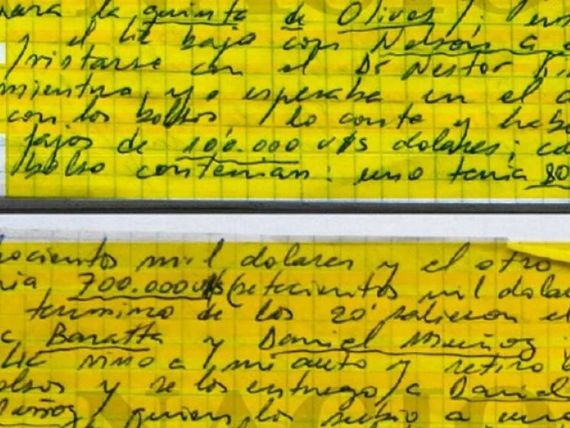 para la quinta de Olivos / 
y el Lic bajo con Nelson a
/ntistarse con el Dr Nestor
mientras yo esperaba en el a
con los bolsos / lo conte y hab
fajos de 100.000 u$s dolares; ca
bolso contenian: uno tenia 80
ocientos mil dolares y el otro
ia 700.000u$s (setecientos mil dola
termino de los 20' salieron el
c Baratta y Daniel Muñoz
Lic vino a mi auto y retiro
olsos y se los entrego a Daniel
Muñoz, quien los subio a una